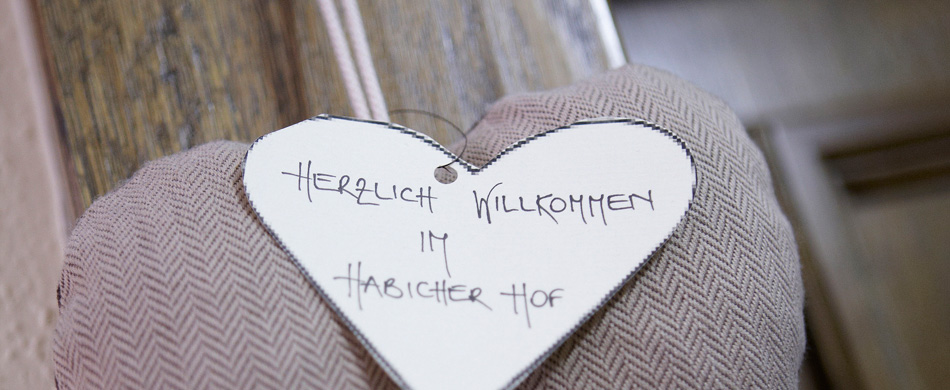 HERZLICH WILLKOMMEN
IM
HABICHER HOF